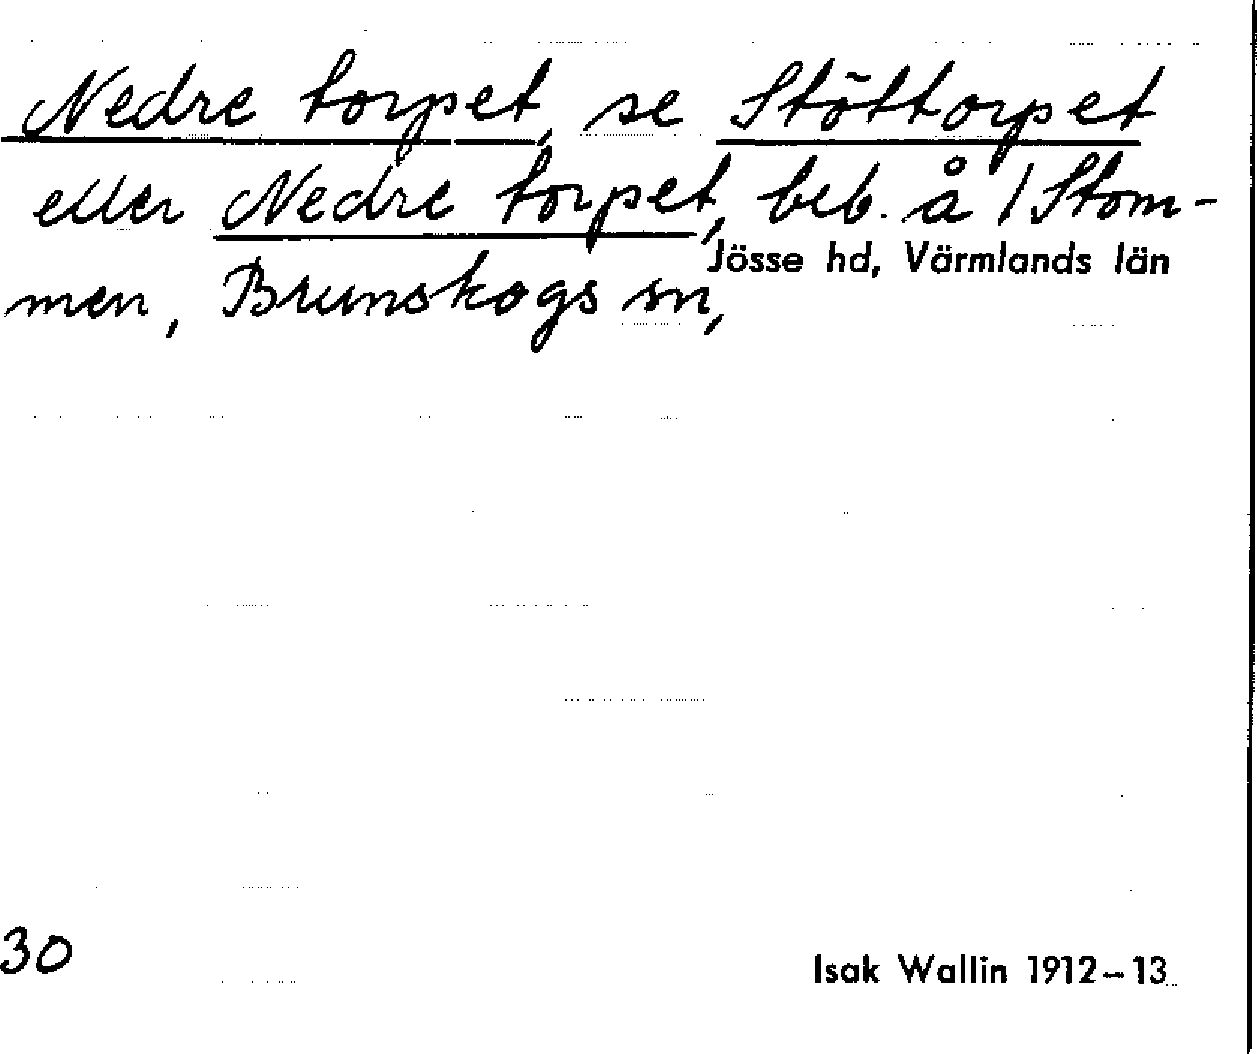 Nedre torpet, se Stöttorpet
eller Nedre torpet, beb. å 1 Stom-
men, Brunskogs sn, Jösse hd, Värmlands län
30
Isak Wallin 1912-13